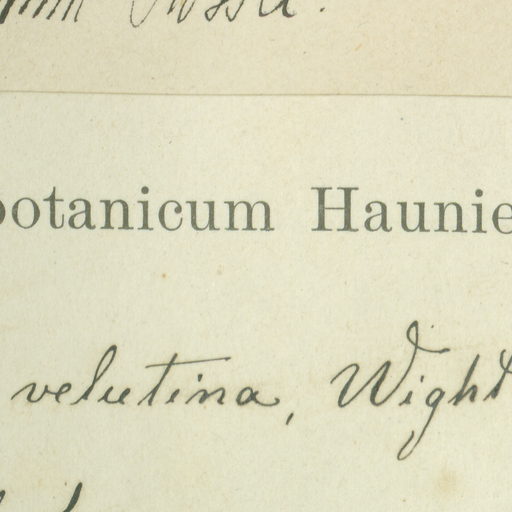 botanicum Haunie
velutina, Wight